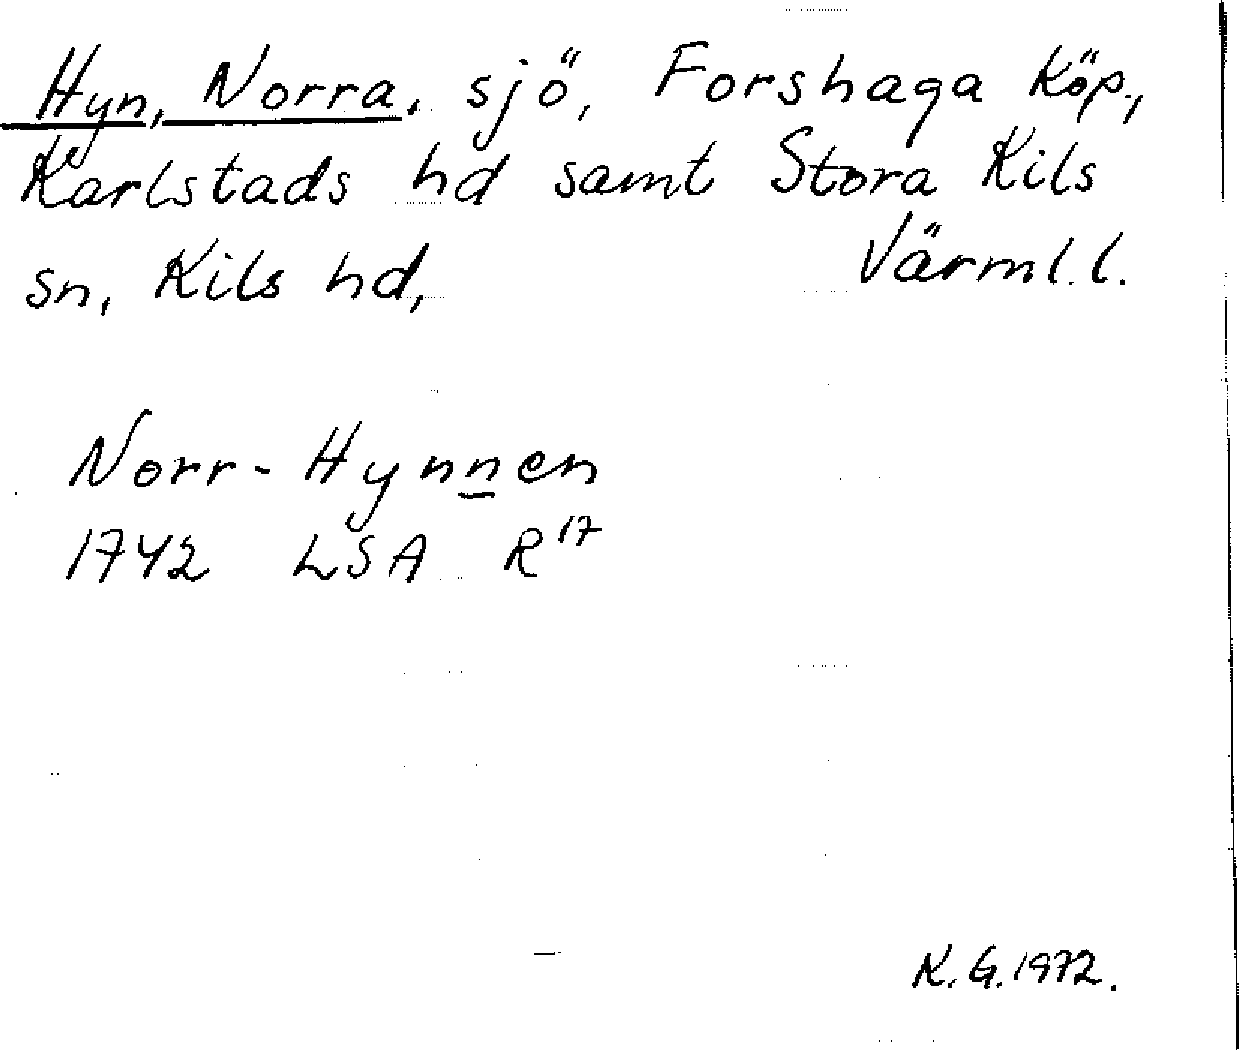 Hyn, Norra, sjö, Forshaga Köp.,
Karlstads hd samt Stora Kils
sn, Kils hd, Värml. l.
Norr-Hynnen
1742 LSA R 17
K. G. 1972.